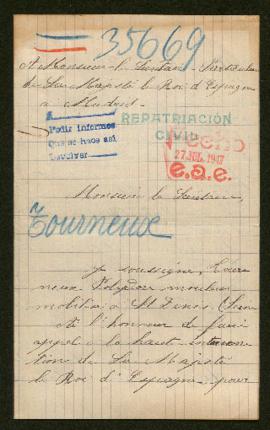 35669
A Monsieur le Secrétaire Particulier
de Sa Majesté le Roi d'Espagne
à Madrid
REPATRIACIÓN
CIVIL
Pedir informes
Que se hace así
Devolver
27 JUL. 1917
Monsieur le Secrétaire,
Tourneux
Je soussigné, Tour
neux Polydor mouleur
mobilisé à St Denis (Seine
ai l'honneur de faire
appel à la haute interven
tion de Sa Majesté
le Roi d'Espagne pour